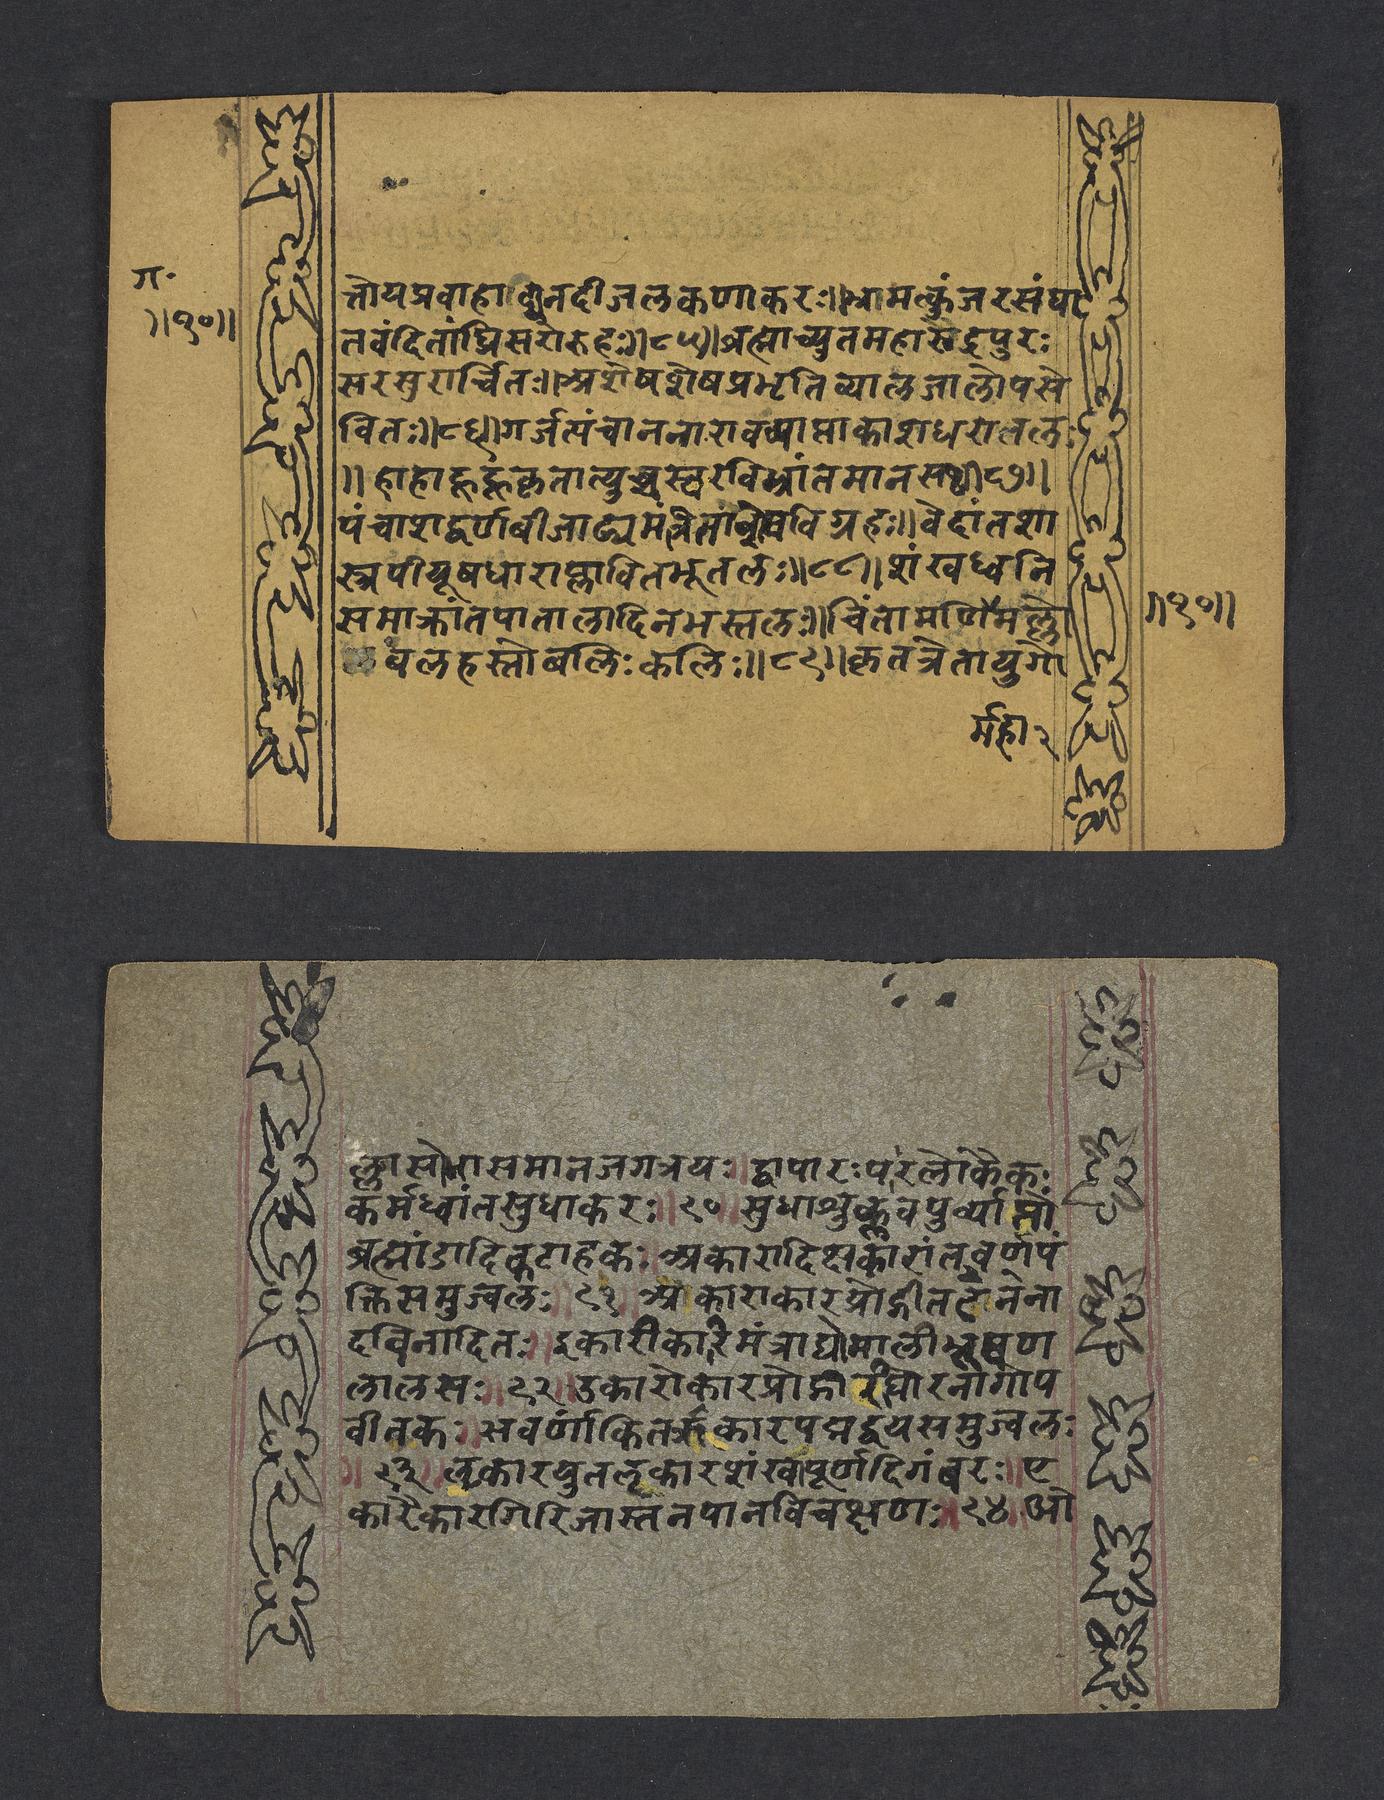 ग॰
॥१०॥
त्तोयप्रवाहा नदीजलकणाकरः॥भ्रामत्कुंजरसंघा
तवंदितांघ्रिसरोरुहः॥८५॥ब्रह्माच्युतमहारुद्रपुरः
सरसुरार्चितः॥अशेषशेषप्रभृतिव्यालजालोपसे
वितः॥८६॥गर्जत्पंचाननारावव्याप्ताकाशधरातलः
॥हाहाहूहूकृतात्युच्चस्वरविभ्रांतमानसः॥८७॥
पंचाशद्वर्णबीजाढ्यमंत्र विग्रहः॥वेदांतशा
स्त्रपीयूषधाराप्लावितभूतलः॥८८॥शंखध्वनि
समाक्रांतपातालादिनभस्तलः॥चिंतामणिर्मल्लो
बलहस्तोबलिःकलिः॥८९॥कृतत्रेतायुगो
र्महा २
॥१०॥
ल्लासोभासमानजगत्रयः॥द्वापारःपरलोकैकः
कर्मध्वांतसुधाकरः॥९०॥सुधाप्लुतवपुर्व्याप्तो
ब्रह्मांडादिकटाहकः॥अकारादिक्षकारांतवर्णपं
क्तिसमुज्वलः॥९१॥आकाराकारप्रोद्गीत नेना
दविनादितः॥इकारीकारमंत्राद्योमाली भूषण
लालसः॥९२॥उकारोकारप्रोद्गीर्ण घोरनागोप
वीतकः॥सवर्णांकितऋकारपद्मद्वयसमुज्वलः
॥९३॥लृकारयुतलृकारशंखपूर्णदिगंबरः॥ए
कारैकारगिरिजास्तनपानविचक्षणः॥९४॥ओ